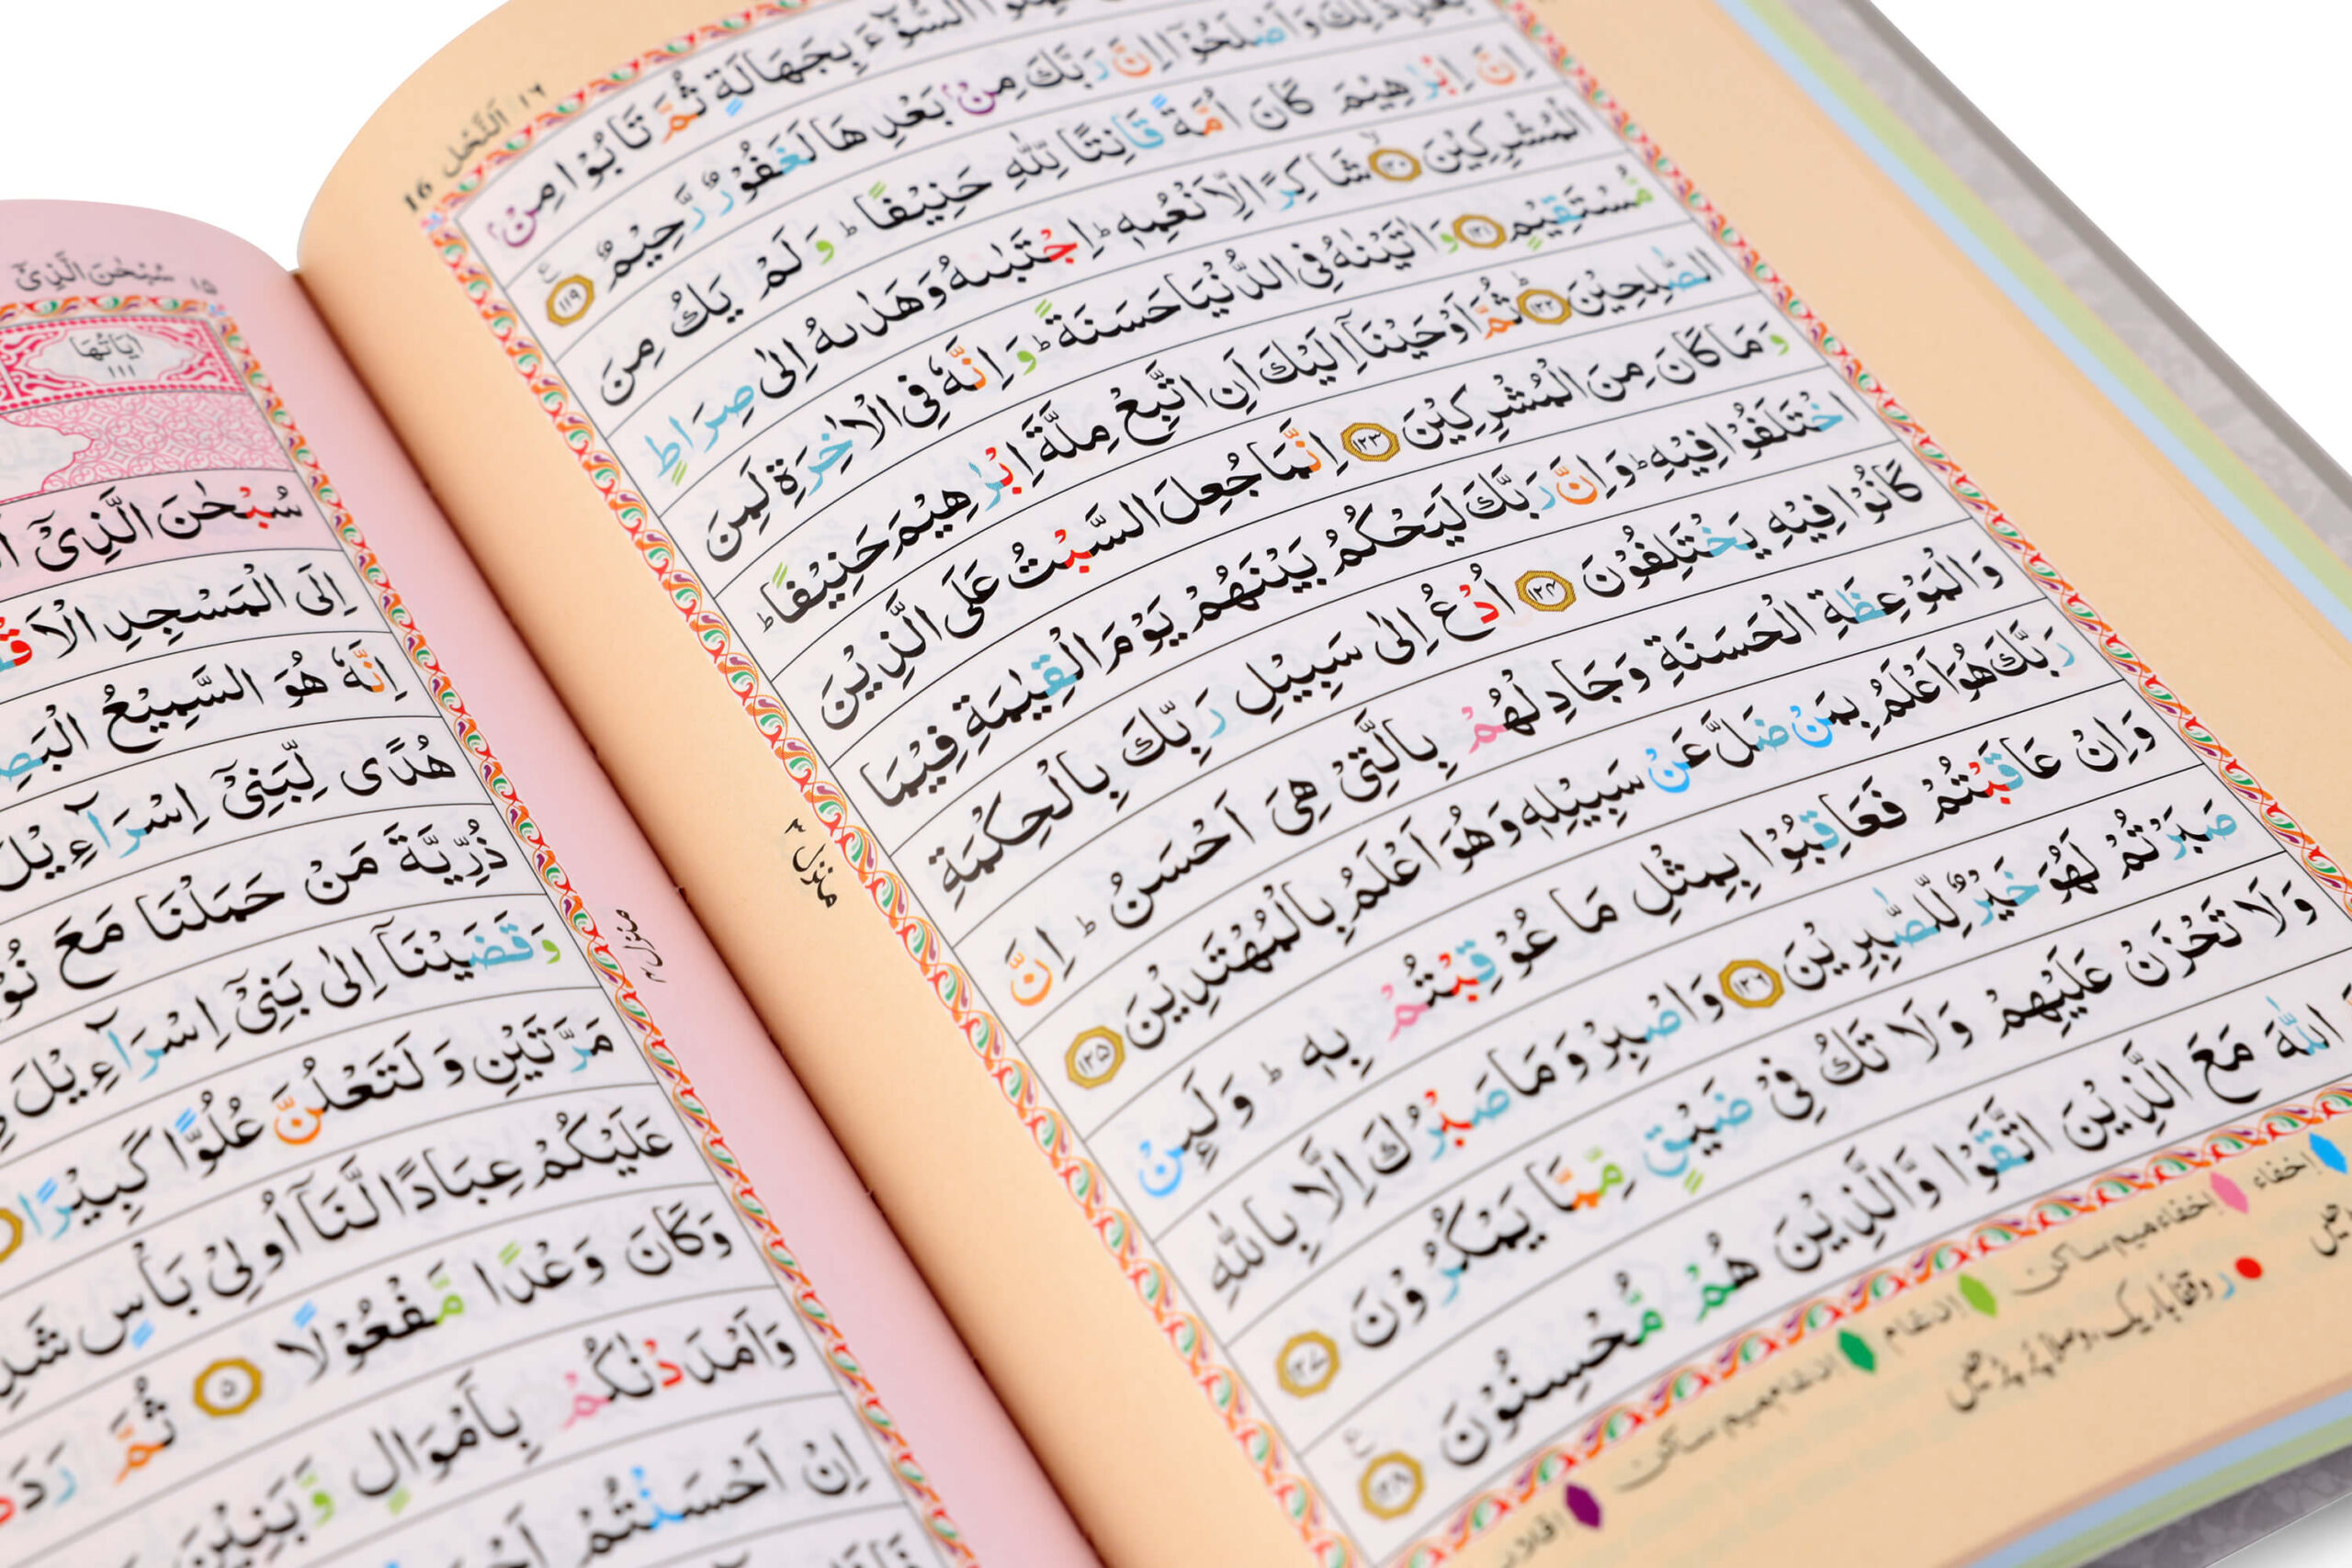 ١٦ النَّحْل 16
السُّوْٓءَ بِجَهَالَةٍ ثُمَّ تَابُوْا مِنْۢ
بَعْدِ ذٰلِكَ وَاَصْلَحُوْٓا اِنَّ رَبَّكَ مِنْۢ بَعْدِهَا لَغَفُوْرٌ رَّحِيْمٌ ١١٩
اِنَّ اِبْرٰهِيْمَ كَانَ اُمَّةً قَانِتًا لِّلّٰهِ حَنِيْفًا ؕ وَلَمْ يَكُ مِنَ
الْمُشْرِكِيْنَ ١٢٠ شَاكِرًا لِّاَنْعُمِهٖ ؕ اِجْتَبٰىهُ وَهَدٰىهُ اِلٰى صِرَاطٍ
مُّسْتَقِيْمٍ ١٢١ وَاٰتَيْنٰهُ فِى الدُّنْيَا حَسَنَةً ؕ وَاِنَّهٗ فِى الْاٰخِرَةِ لَمِنَ
الصّٰلِحِيْنَ ١٢٢ ثُمَّ اَوْحَيْنَآ اِلَيْكَ اَنِ اتَّبِعْ مِلَّةَ اِبْرٰهِيْمَ حَنِيْفًا ؕ
وَمَا كَانَ مِنَ الْمُشْرِكِيْنَ ١٢٣ اِنَّمَا جُعِلَ السَّبْتُ عَلَى الَّذِيْنَ
اخْتَلَفُوْا فِيْهِ ؕ وَاِنَّ رَبَّكَ لَيَحْكُمُ بَيْنَهُمْ يَوْمَ الْقِيٰمَةِ فِيْمَا
كَانُوْا فِيْهِ يَخْتَلِفُوْنَ ١٢٤ اُدْعُ اِلٰى سَبِيْلِ رَبِّكَ بِالْحِكْمَةِ
وَالْمَوْعِظَةِ الْحَسَنَةِ وَجَادِلْهُمْ بِالَّتِىْ هِىَ اَحْسَنُ ؕ اِنَّ
رَبَّكَ هُوَ اَعْلَمُ بِمَنْ ضَلَّ عَنْ سَبِيْلِهٖ وَهُوَ اَعْلَمُ بِالْمُهْتَدِيْنَ ١٢٥
وَاِنْ عَاقَبْتُمْ فَعَاقِبُوْا بِمِثْلِ مَا عُوْقِبْتُمْ بِهٖ ؕ وَلَىِٕنْ
صَبَرْتُمْ لَهُوَ خَيْرٌ لِّلصّٰبِرِيْنَ ١٢٦ وَاصْبِرْ وَمَا صَبْرُكَ اِلَّا بِاللّٰهِ
وَلَا تَحْزَنْ عَلَيْهِمْ وَلَا تَكُ فِىْ ضَيْقٍ مِّمَّا يَمْكُرُوْنَ ١٢٧
اللّٰهَ مَعَ الَّذِيْنَ اتَّقَوْا وَّالَّذِيْنَ هُمْ مُّحْسِنُوْنَ ١٢٨
منزل ٣
اخفاء اخفاء میم ساکن ادغام ادغام میم ساکن
سُبْحٰنَ الَّذِىْٓ ١٥
اٰيَاتُهَا ١١١
سُبْحٰنَ الَّذِىْٓ
اِلَى الْمَسْجِدِ
اِنَّهٗ هُوَ السَّمِيْعُ
هُدًى لِّبَنِىْٓ اِسْرَآءِيْلَ
ذُرِّيَّةَ مَنْ حَمَلْنَا مَعَ
وَقَضَيْنَآ اِلٰى بَنِىْٓ اِسْرَآءِيْلَ
مَرَّتَيْنِ وَلَتَعْلُنَّ عُلُوًّا كَبِيْرًا
عَلَيْكُمْ عِبَادًا لَّنَآ اُولِىْ بَاْسٍ
وَكَانَ وَعْدًا مَّفْعُوْلًا ٥ ثُمَّ
وَاَمْدَدْنٰكُمْ بِاَمْوَالٍ وَّبَنِيْنَ
اِنْ اَحْسَنْتُمْ
منزل ٤